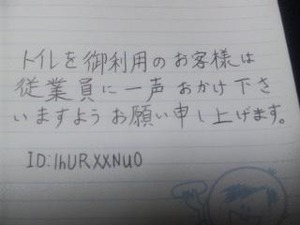 トイレを御利用のお客様は
従業員に一声おかけ下さ
いますようお願い申し上げます。
ID:lhURXXNU0